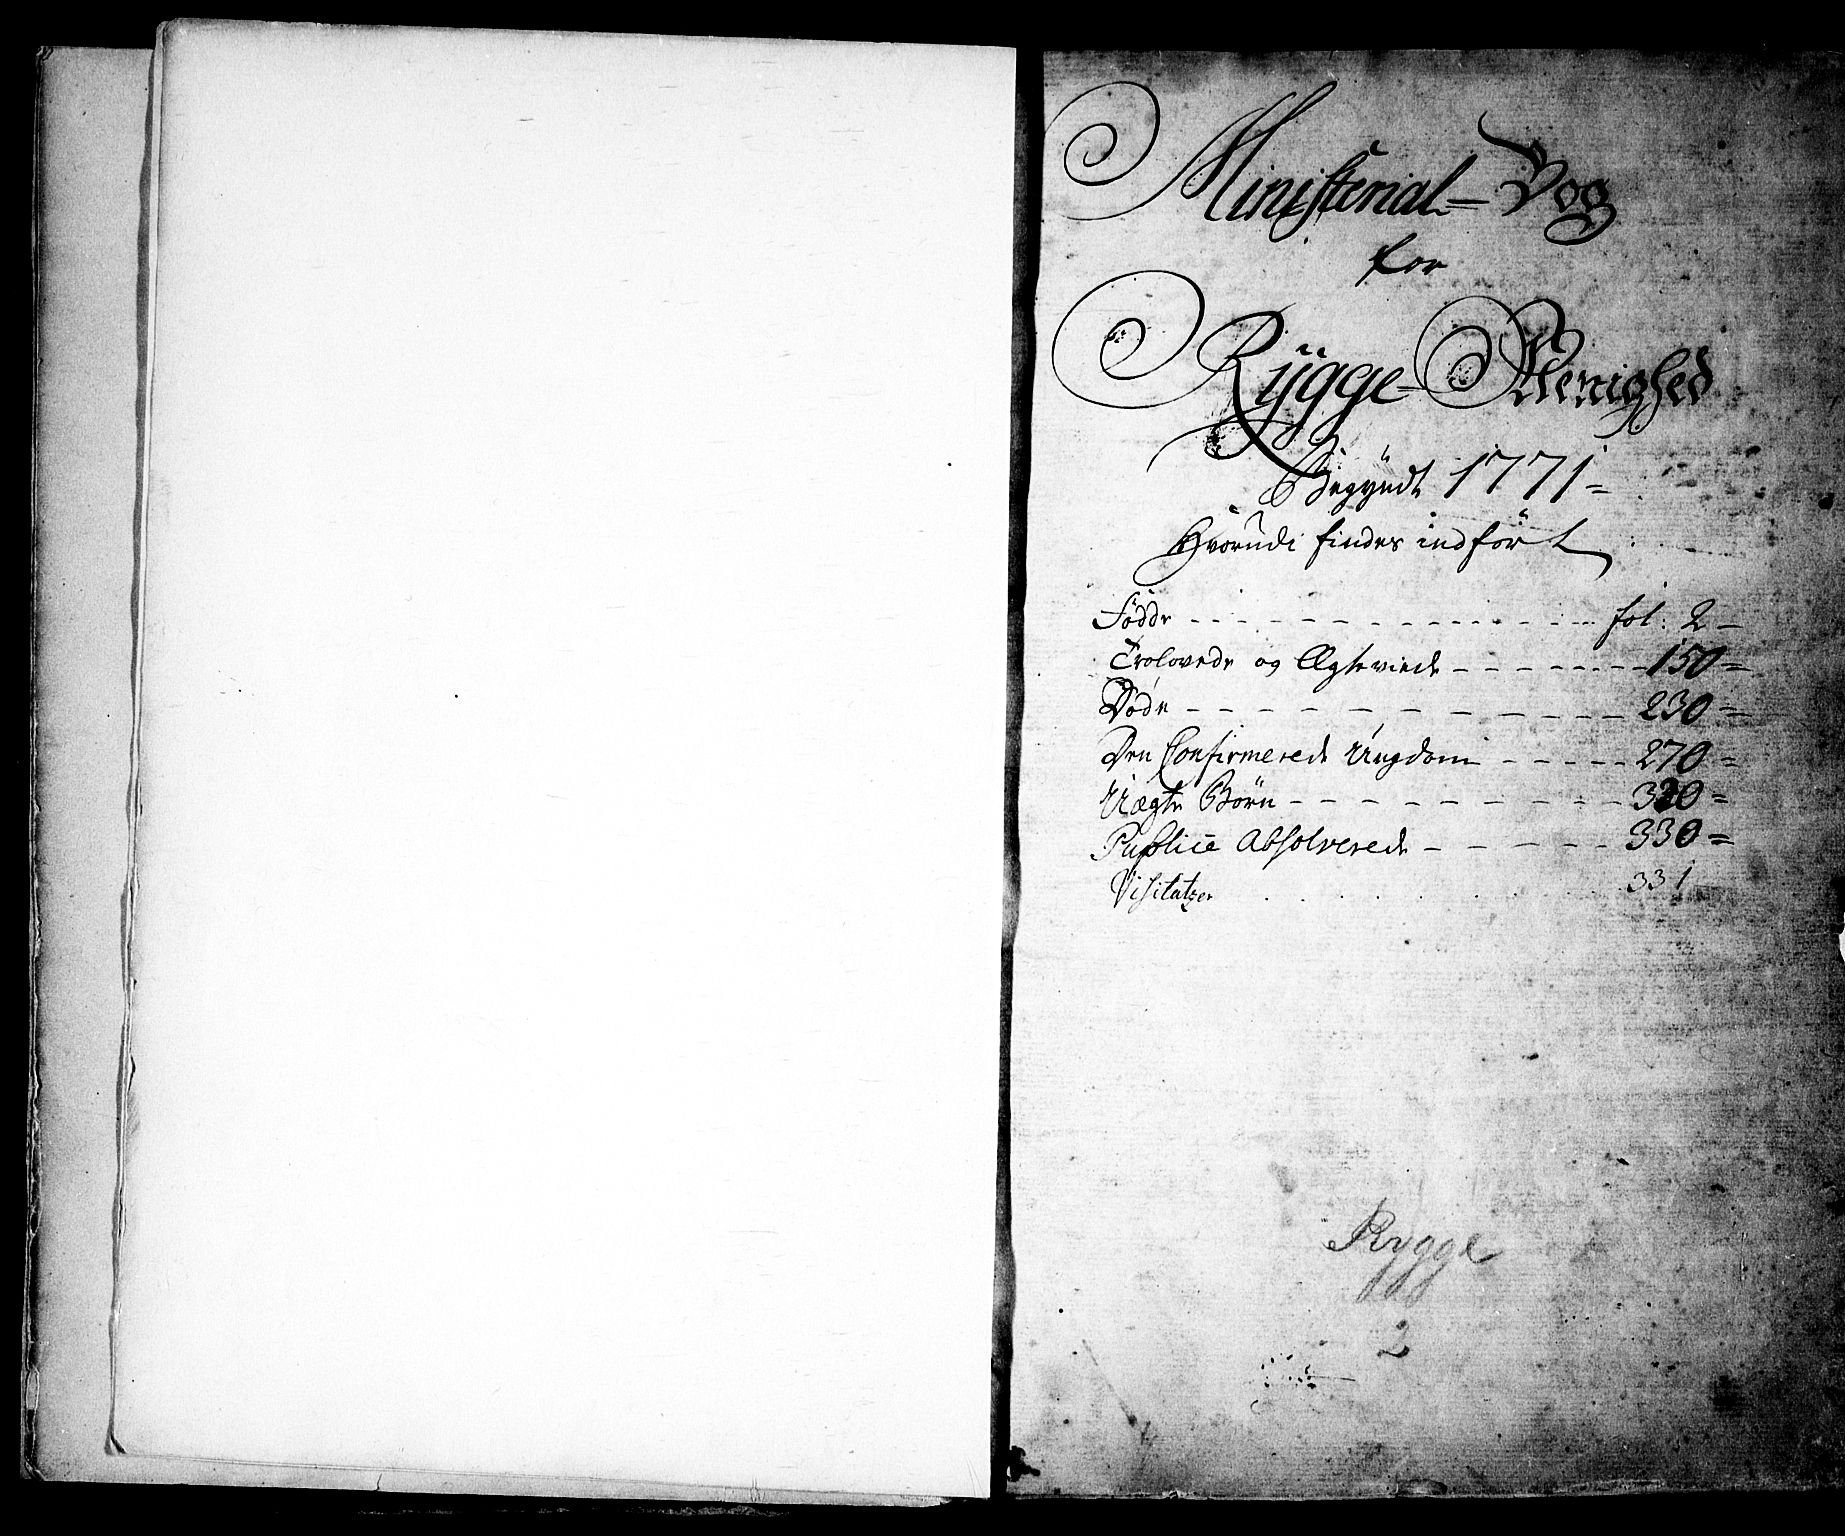 Ministerial-Bog
for
Rÿgge-Menighed
Begÿndt 1771
Hvorudi findes indført
Fødde fol: 2
Trolovede og Ægteviede 150
Døde 230
Den Confirmerede Ungdom 270
Uægte Børn 320
Publice Absolverede 330
Visitatzer 331
Rygge
2